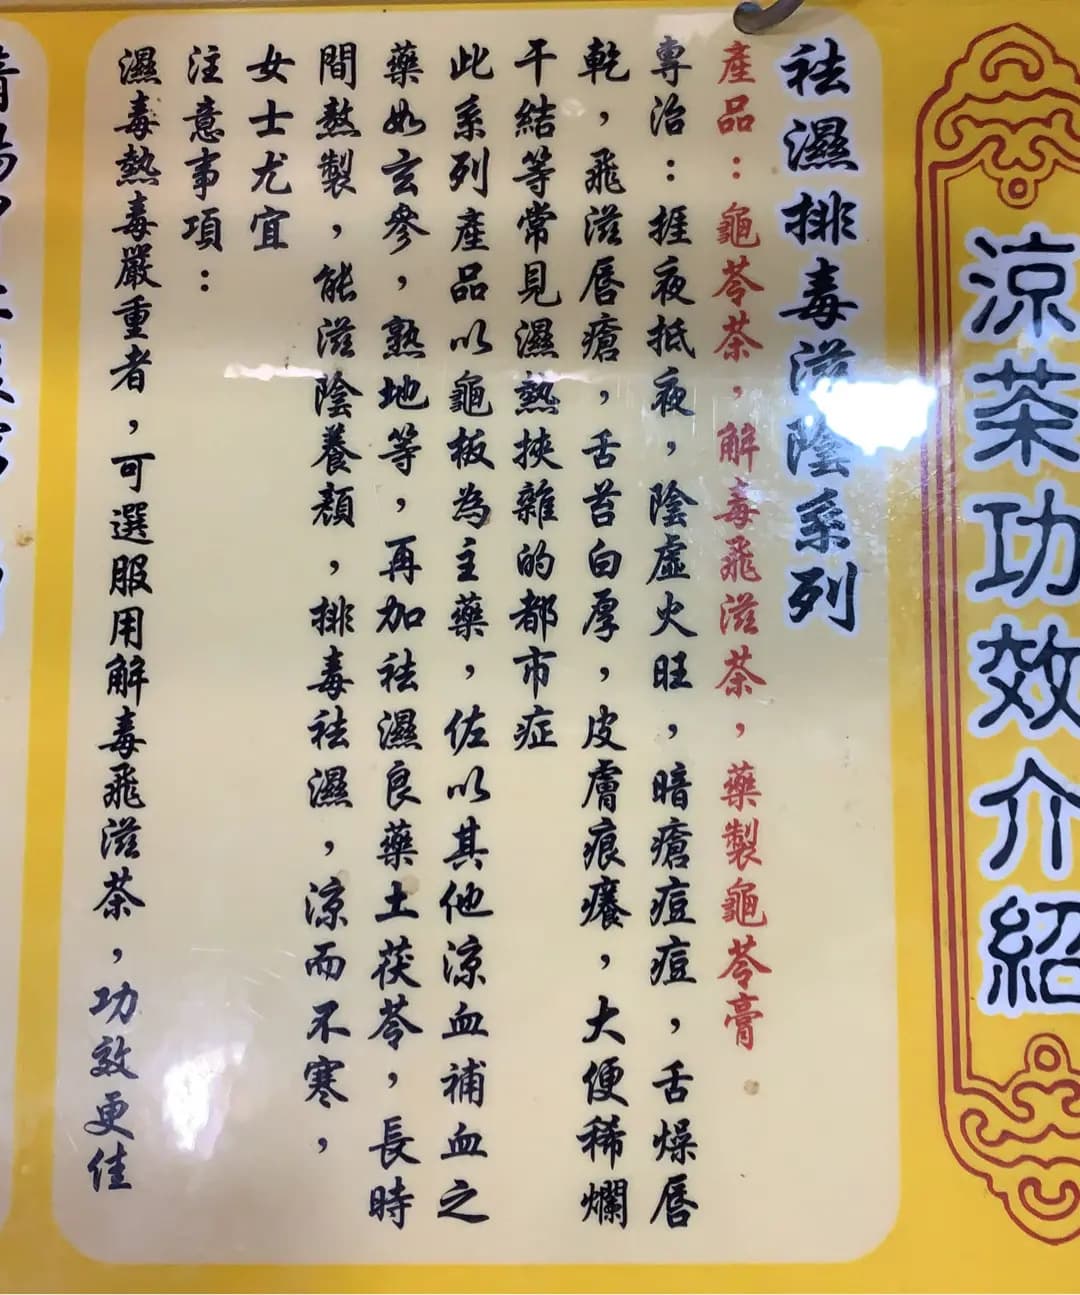 涼茶功效介紹
祛濕排毒滋陰系列
產品：龜苓茶，解毒飛滋茶，藥製龜苓膏
專治：捱夜抵夜，陰虛火旺，暗瘡痘痘，舌燥唇
乾，飛滋唇瘡，舌苔白厚，皮膚痕癢，大便稀爛
干結等常見濕熱挾雜的都市症
此系列產品以龜板為主藥，佐以其他涼血補血之
藥如玄參，熟地等，再加祛濕良藥土茯苓，長時
間熬製，能滋陰養顏，排毒祛濕，涼而不寒，
女士尤宜
注意事項：
濕毒熱毒嚴重者，可選服用解毒飛滋茶，功效更佳